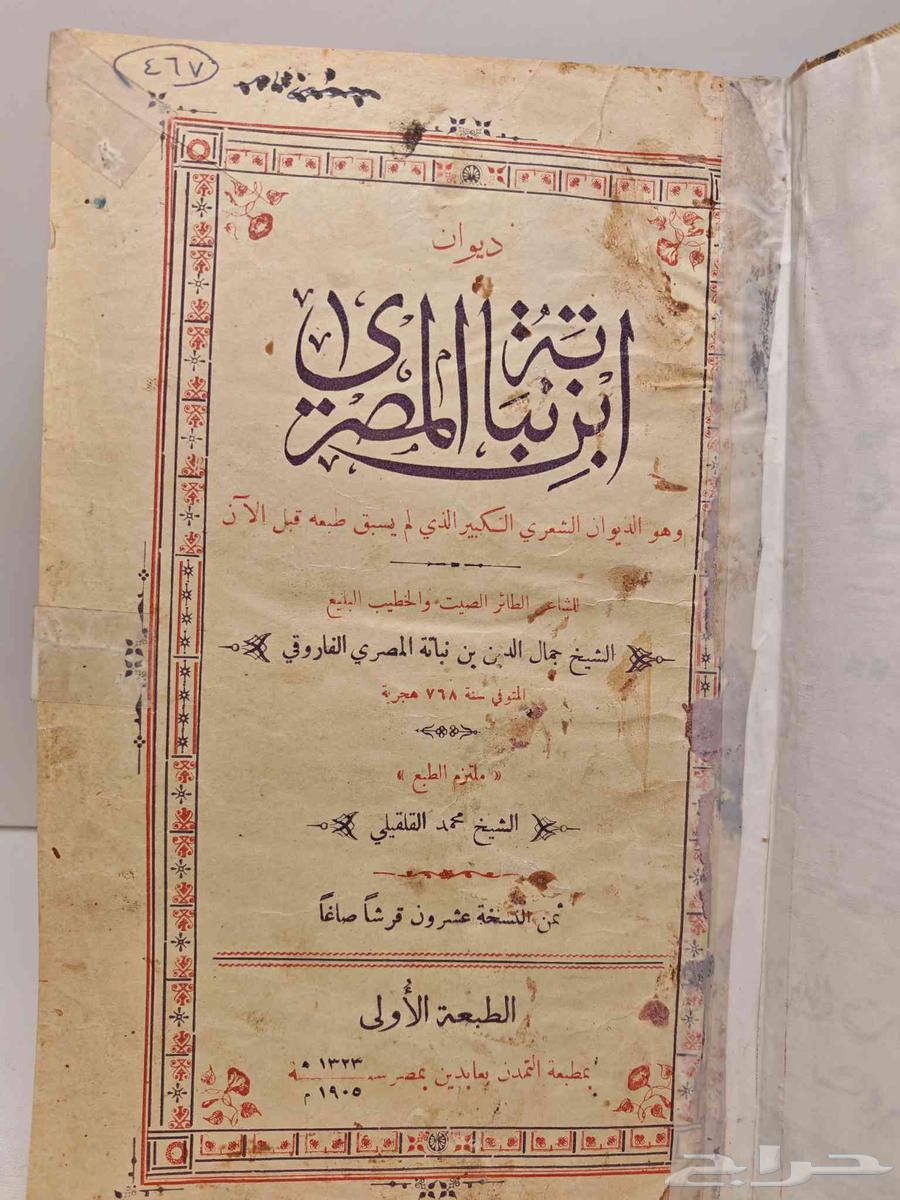 ٤٦٧
ديوان
ابن نباتة المصري
وهو الديوان الشعري الكبير الذي لم يسبق طبعه قبل الآن
للشاعر الطائر الصيت والخطيب البليغ
الشيخ جمال الدين بن نباتة المصري الفاروقي
المتوفي سنة ٧٦٨ هجرية
« ملتزم الطبع »
الشيخ محمد القلقيلي
ثمن النسخة عشرون قرشاً صاغاً
الطبعة الأُولى
بمطبعة التمدن بعابدين بمصر سنة ١٣٢٣ ه
١٩٠٥ م
حراج